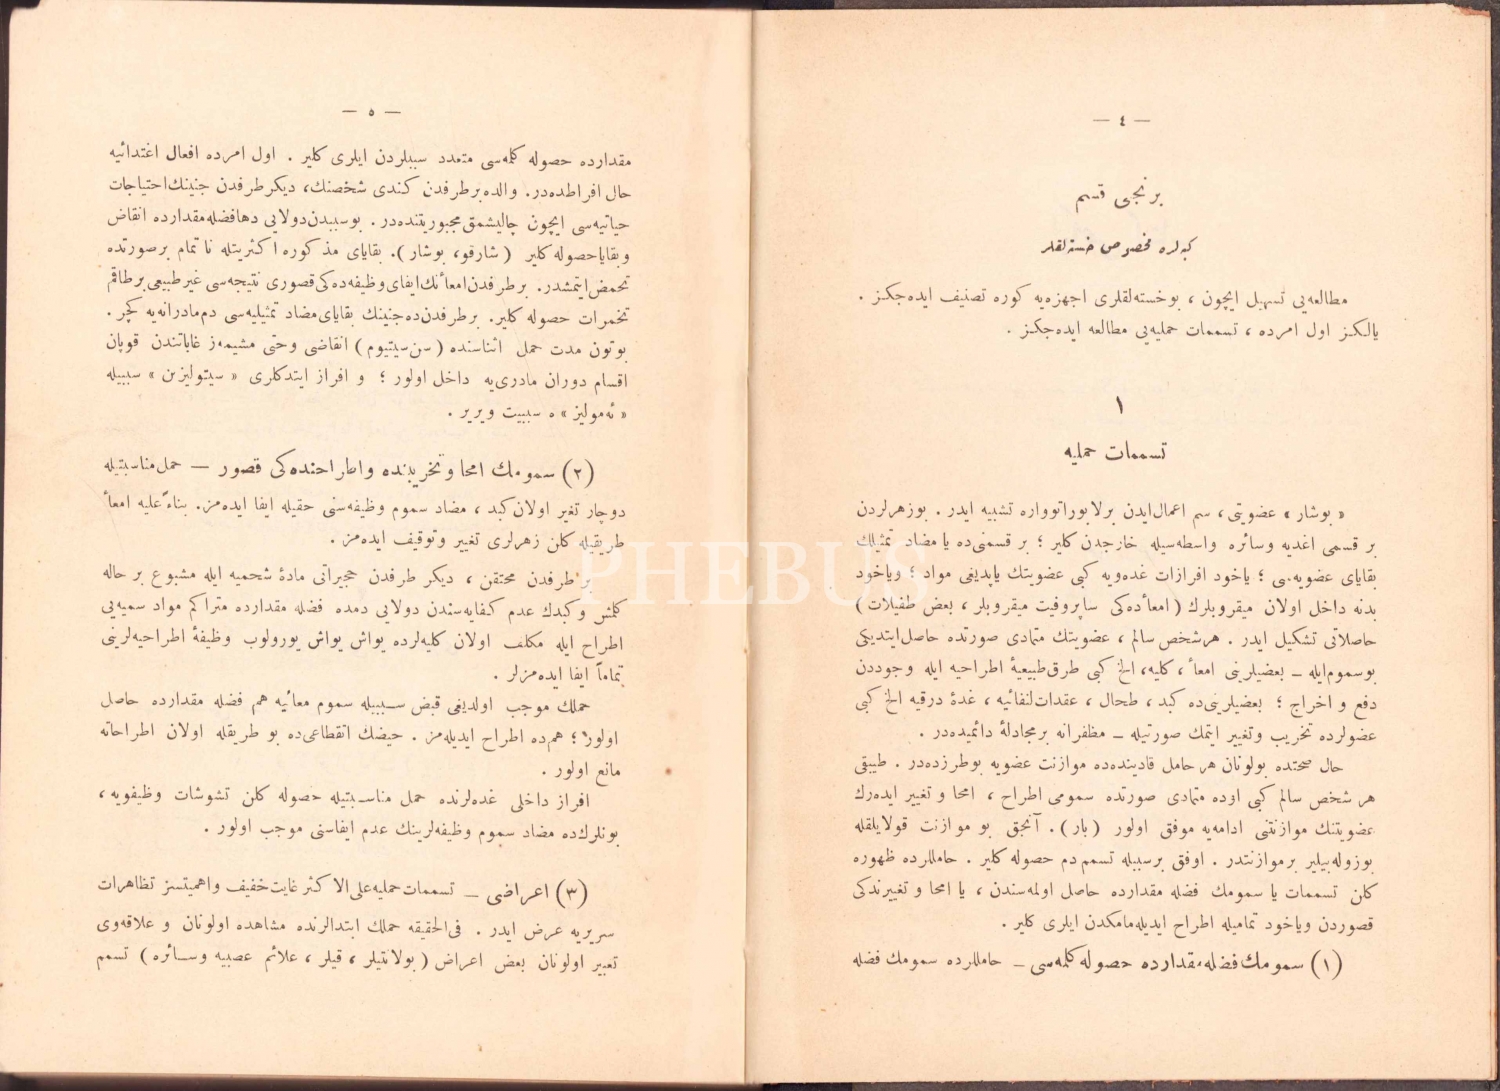 — ٤ —
برنجی قسم
كبه‌لره مخصوص خسته‌لقلر
مطالعه‌یی تسهیل ایچون ، بوخسته‌لقلری اجهزه‌یه كوره تصنیف ایده‌جكز .
یالكز اول امرده ، تسممات حملیه‌یی مطالعه ایده‌جكز .
١
تسممات حملیه
« بوشار » عضویتی ، سم اعمال‌ایدن برلابوراتوواره تشبیه ایدر . بوزهرلردن
بر قسمی اغدیه وسائره واسطه‌سیله خارجدن كلیر ؛ بر قسمنی‌ده یا مضاد تمثیلك
بقایای عضویه‌سی ؛ یاخود افرازات غدەویه كبی عضویتك یاپدیغی مواد ؛ ویاخود
بدنه داخل اولان میقروبلرك ( امعأده‌كی ساپروفیت میقروبلر ، بعض طفیلات )
حاصلاتی تشكیل ایدر . هرشخص سالم ، عضویتك متمادی صورتده حاصل‌ایتدیكی
بوسموم‌ایله — بعضیلرینی امعأ ، كلیه، الخ كبی طرق‌طبیعیهٔ اطراحیه ایله وجوددن
دفع و اخراج ؛ بعضیلرینی‌ده كبد ، طحال ، عقدات‌لنفائیه ، غدهٔ درقیه الخ كبی
عضولرده تخریب وتغییر ایتمك صورتیله — مظفرانه برمجادلهٔ دائمیده‌در .
حال صحتده بولونان هرحامل قادینده‌ده موازنت عضویه بوطرزده‌در . طبیقی
هر شخص سالم كبی اوده متمادی صورتده سمومی اطراح ، امحا و تغییر ایده‌رك
عضویتنك موازنتنی ادامه‌یه موفق اولور ( بار ) . آنجق بو موازنت قولایلقله
بوزوله‌بیلیر برموازنتدر . اوفق برسببله تسمم دم حصوله كلیر . حاملرده ظهوره
كلن تسممات یا سمومك فضله مقدارده حاصل اولمه‌سندن ، یا امحا و تغییرنده‌كی
قصوردن ویاخود تمامیله اطراح ایدیله‌مامكدن ایلری كلیر .
( ١ ) سمومك فضله‌مقدارده حصوله كلمه‌سی — حاملرده سمومك فضله
— ٥ —
مقدارده حصوله كلمه‌سی متعدد سببلردن ایلری كلیر . اول امرده افعال اغتدائیه
حال افراطده‌در. والده برطرفدن كندی شخصنك، دیكرطرفدن جنینك‌احتیاجات
حیاتیه‌سی ایچون چالیشمق مجبوریتنده‌در . بوسببدن‌دولایی دهافضله‌مقدارده انقاض
وبقایاحصوله كلیر ( شارقو، بوشار ). بقایای مذكوره اكثریتله ناتمام برصورتده
تحمض‌ایتمشدر. برطرفدن‌امعأنك‌ایفای‌وظیفه‌ده‌كی‌قصوری نتیجه‌سی غیرطبیعی‌برطاقم
تخمرات حصوله كلیر. برطرفدن‌ده‌جنینك بقایای‌مضاد تمثیلیه‌سی دم‌مادرانه‌یه كچر .
بوتون مدت حمل اثناسنده ( سن‌سیتیوم ) انقاضی وحتی مشیمه‌نز غاباتندن قوپان
اقسام دوران مادری‌یه داخل اولور ؛ و افراز ایتدكلری « سیتولیزین » سببیله
« ئه‌مولیز » ه سببیت ویریر .
( ٢ ) سمومك امحا وتخریبنده واطراحنده‌كی قصور — حمل‌مناسبتیله
دوچار تغیر اولان‌كبد ، مضاد سموم وظیفه‌سنی حقیله ایفا ایده‌مز. بناءً علیه امعأ
طریقیله كلن زهرلری تغییر وتوقیف ایده‌مز .
بر طرفدن محتقن ، دیكر طرفدن حجیراتی مادهٔ شحمیه ایله مشبوع بر حاله
كلمش وكبدك عدم كفایه‌سندن دولایی دمده فضله مقدارده متراكم مواد سمیه‌یی
اطراح ایله مكلف اولان كلیه‌لرده یواش یواش یورولوب وظیفهٔ اطراحیه‌لرینی
تماماً ایفا ایده‌مزلر .
حملك موجب اولدیغی قبض سببیله سموم معائیه هم فضله مقدارده حاصل
اولور ؛ هم‌ده اطراح ایدیله‌مز . حیضك انقطاعی‌ده بو طریقله اولان اطراحاته
مانع اولور .
افراز داخلی غده‌لرنده حمل مناسبتیله حصوله كلن تشوشات وظیفویه ،
بونلرك‌ده مضاد سموم وظیفه‌لرینك عدم ایفاسنی موجب اولور .
( ٣ ) اعراضی — تسممات‌حملیه‌علی‌الاكثر غایت‌خفیف واهمیتسز تظاهرات
سریریه عرض ایدر . فی‌الحقیقه حملك ابتدالرنده مشاهده اولونان و علاقه‌وی
تعبیر اولونان بعض اعراض ( بولانتیلر ، قیلر ، علائم عصبیه وسائره ) تسمم
PHEBUS